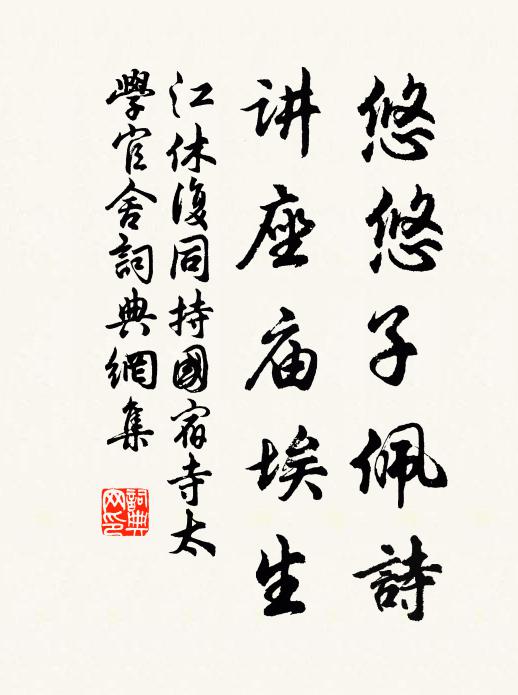 悠悠子佩詩
讲座庙埃生
江休復同持國宿寺太
學官舍詞典網集
詞典
网印